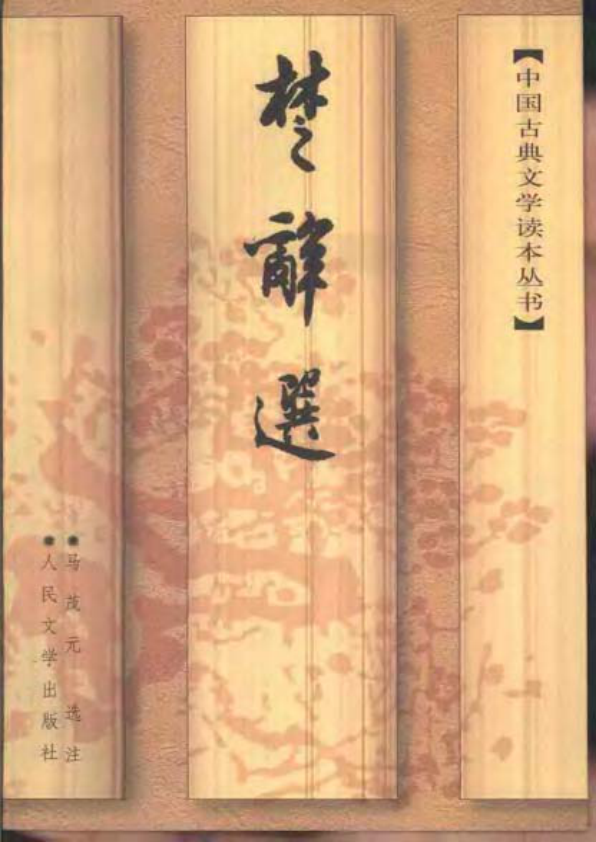 【中国古典文学读本丛书】
楚辭選
●马茂元 选注
●人民文学出版社